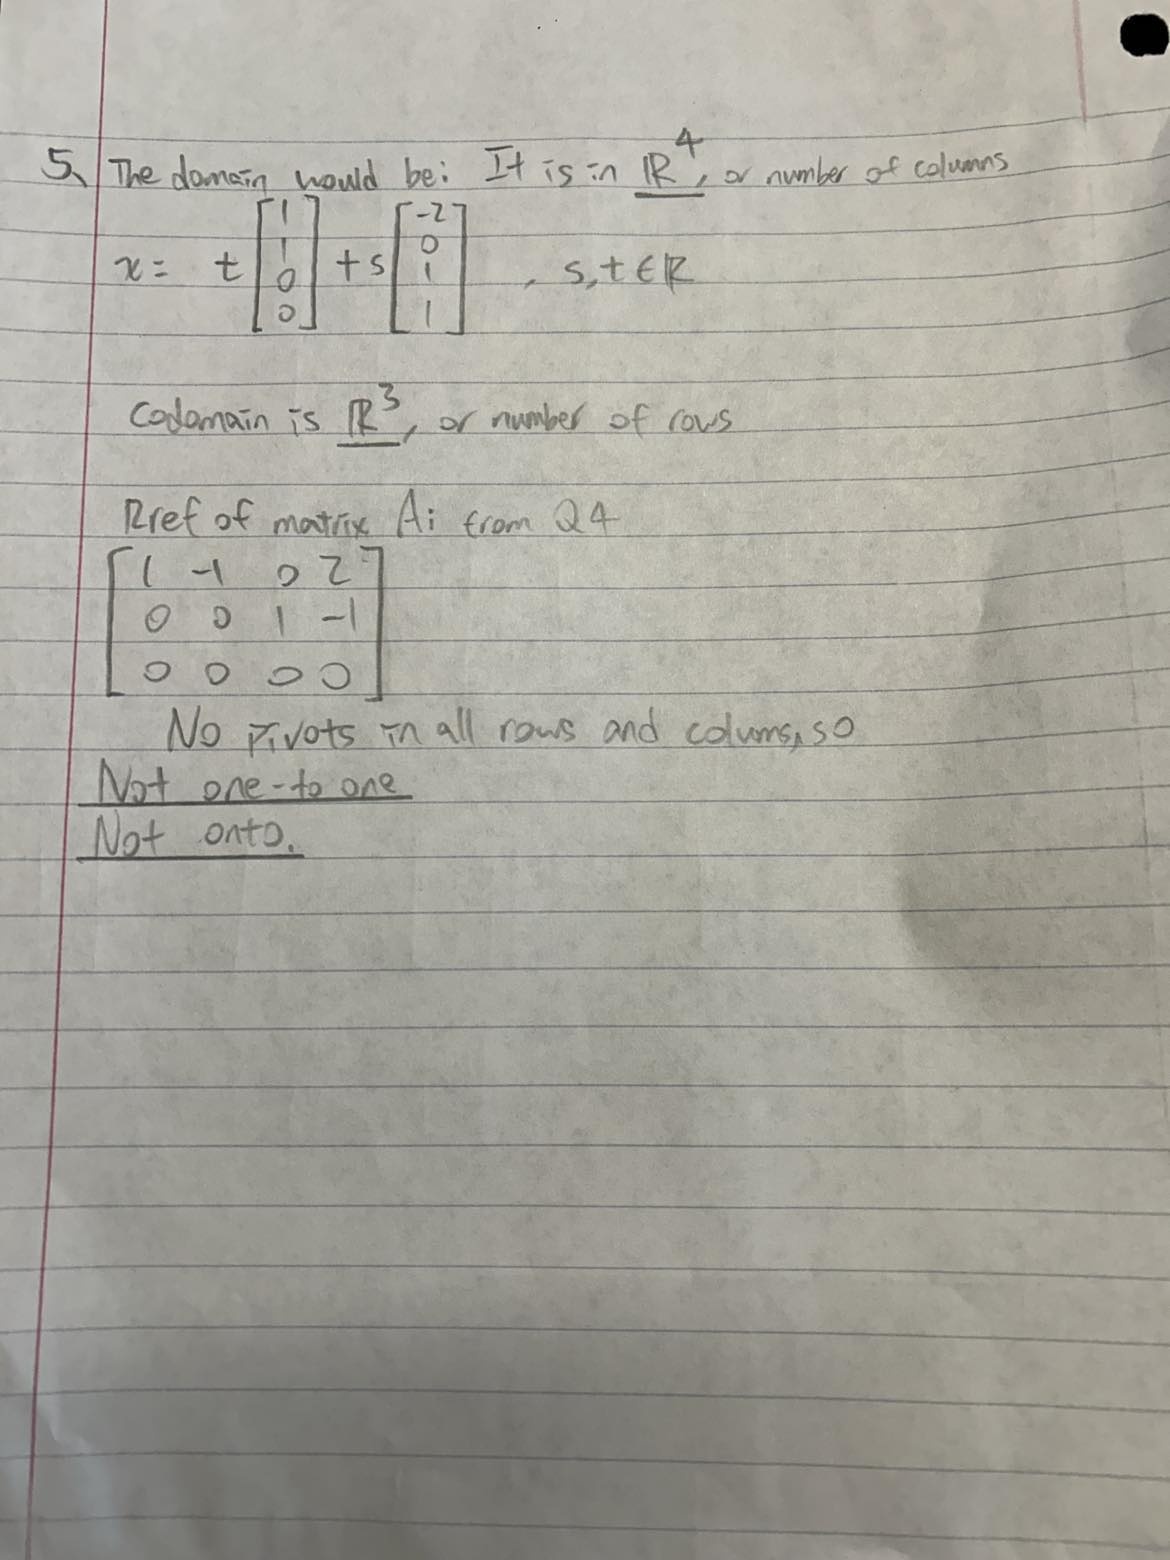 5. The domain would be: It is in ℝ⁴, or number of columns
x = t [1 1 0 0] + s [-2 0 1 1] , s,t ∈ ℝ
Codomain is ℝ³, or number of rows
Rref of matrix A: from Q4
[1 -1 0 2
0 0 1 -1
0 0 0 0]
No pivots in all rows and colums, so
Not one-to one
Not onto.